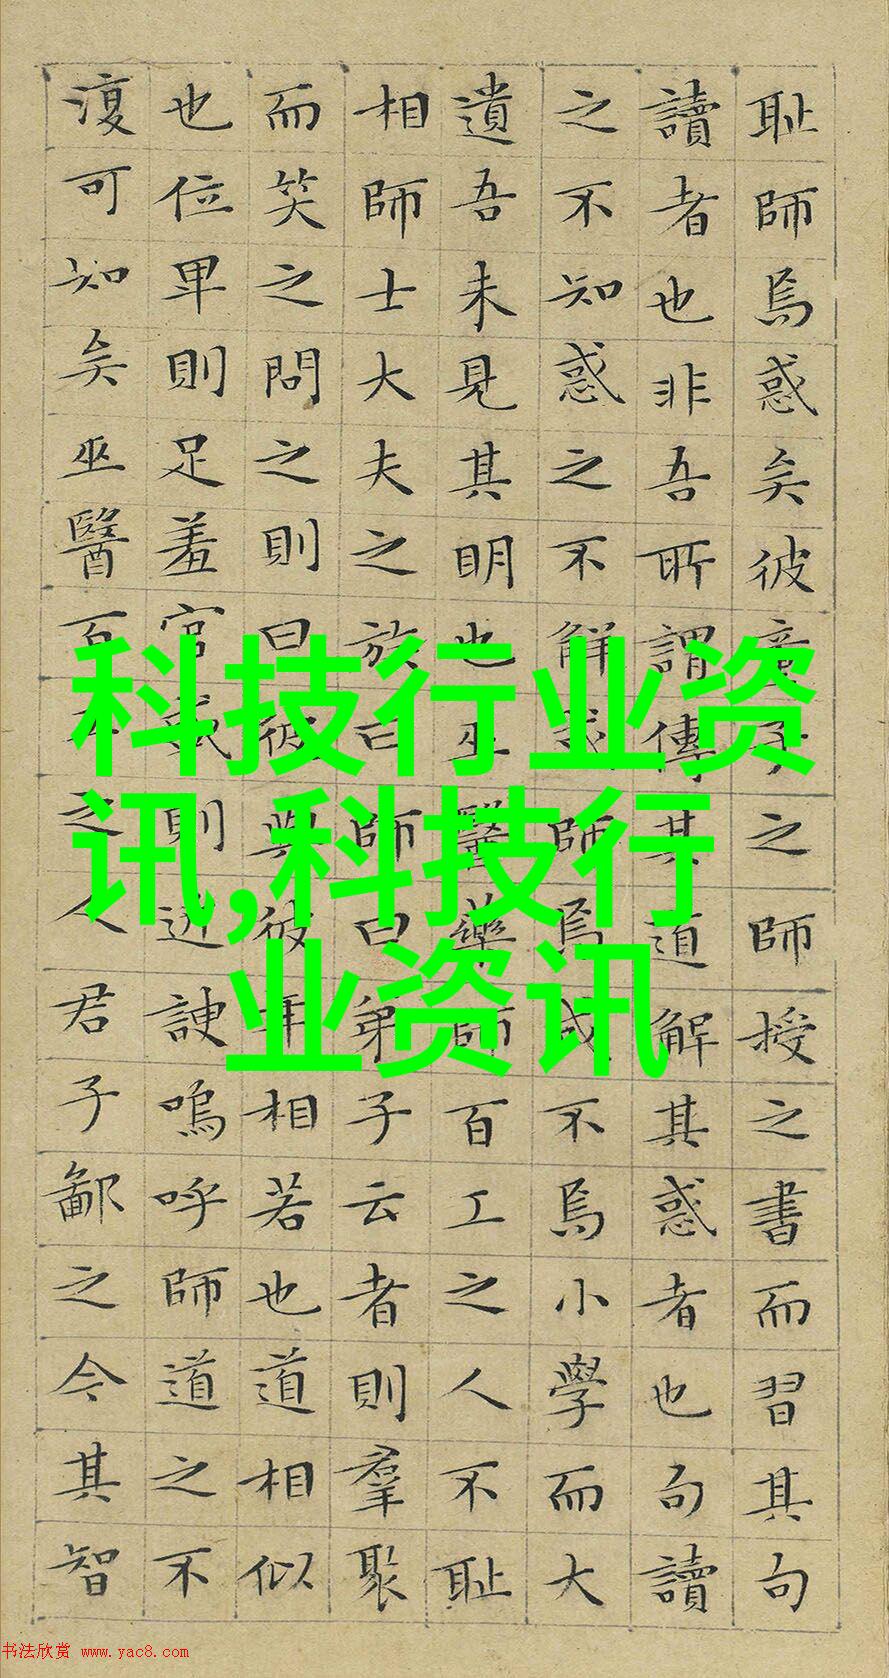 耻師焉惑矣彼童子之師授之書而習其句
讀者也非吾所謂傳其道解其惑者也句讀
之不知惑之不解或師焉或不焉小學而大
遺吾未見其明也巫醫藥師百工之人不耻
相師士大夫之族曰師曰弟子云者則羣聚
而笑之問之則曰彼與彼年相若也道相似
也位卑則足羞官盛則近諛嗚呼師道之不
復可知矣巫醫百工之人君子鄙之今其智
科技行业资
讯,科技行
业资讯
书法欣赏 www.yac8.com